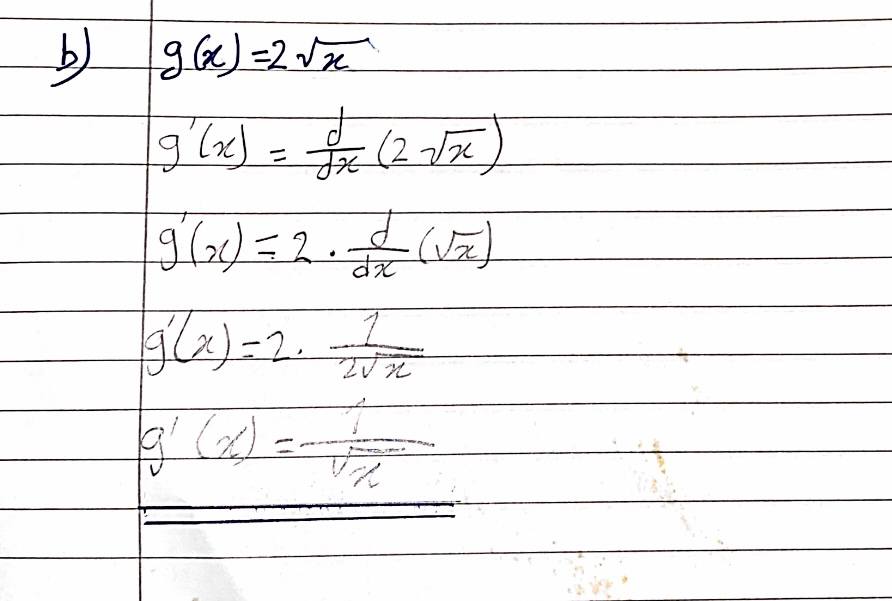 b) g(x)=2√x
g'(x) = d/dx (2√x)
g'(x) = 2 · d/dx (√x)
g'(x) = 2 · 1/2√x
g'(x) = 1/√x